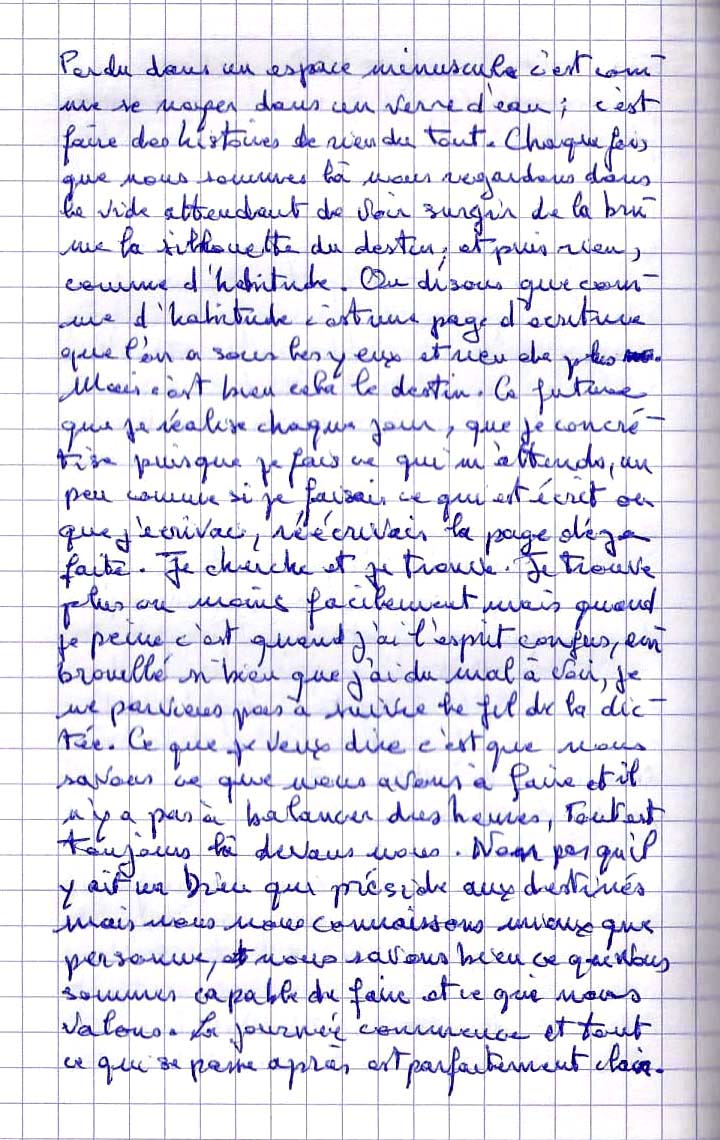 Perdu dans un espace minuscule c'est com-
me se noyer dans un verre d'eau ; c'est
faire des histoires de rien du tout. Chaque fois
que nous sommes là nous regardons dans
le vide attendant de voir surgir de la bru-
me la silhouette du destin, et puis rien,
comme d'habitude. Ou disons que com-
me d'habitude c'est une page d'écriture
que l'on a sous les yeux et rien de plus.
Mais c'est bien cela le destin. Ce future
que je réalise chaque jour, que je concré-
tise puisque je fais ce qui m'attends, un
peu comme si je faisais ce qui est écrit ou
que j'écrivai, réécrivais la page déja
faite. Je cherche et je trouve. Je trouve
plus ou moins facilement mais quand
je peine c'est quand j'ai l'esprit confus, em
brouillé si bien que j'ai du mal à voir, je
ne parviens pas à suivre le fil de la dic-
tée. Ce que je veux dire c'est que nous
savons ce que nous avons à faire et il
n'y a pas à balancer des heures, tout est
toujours là devans nous. Non pas qu'il
y ait un Dieu qui préside aux destinés
mais nous nous connaissons mieux que
personne, et nous savons bien ce que nous
sommes capable de faire et ce que nous
valons. La journée commence et tout
ce qui se passe après est parfaitement clair.